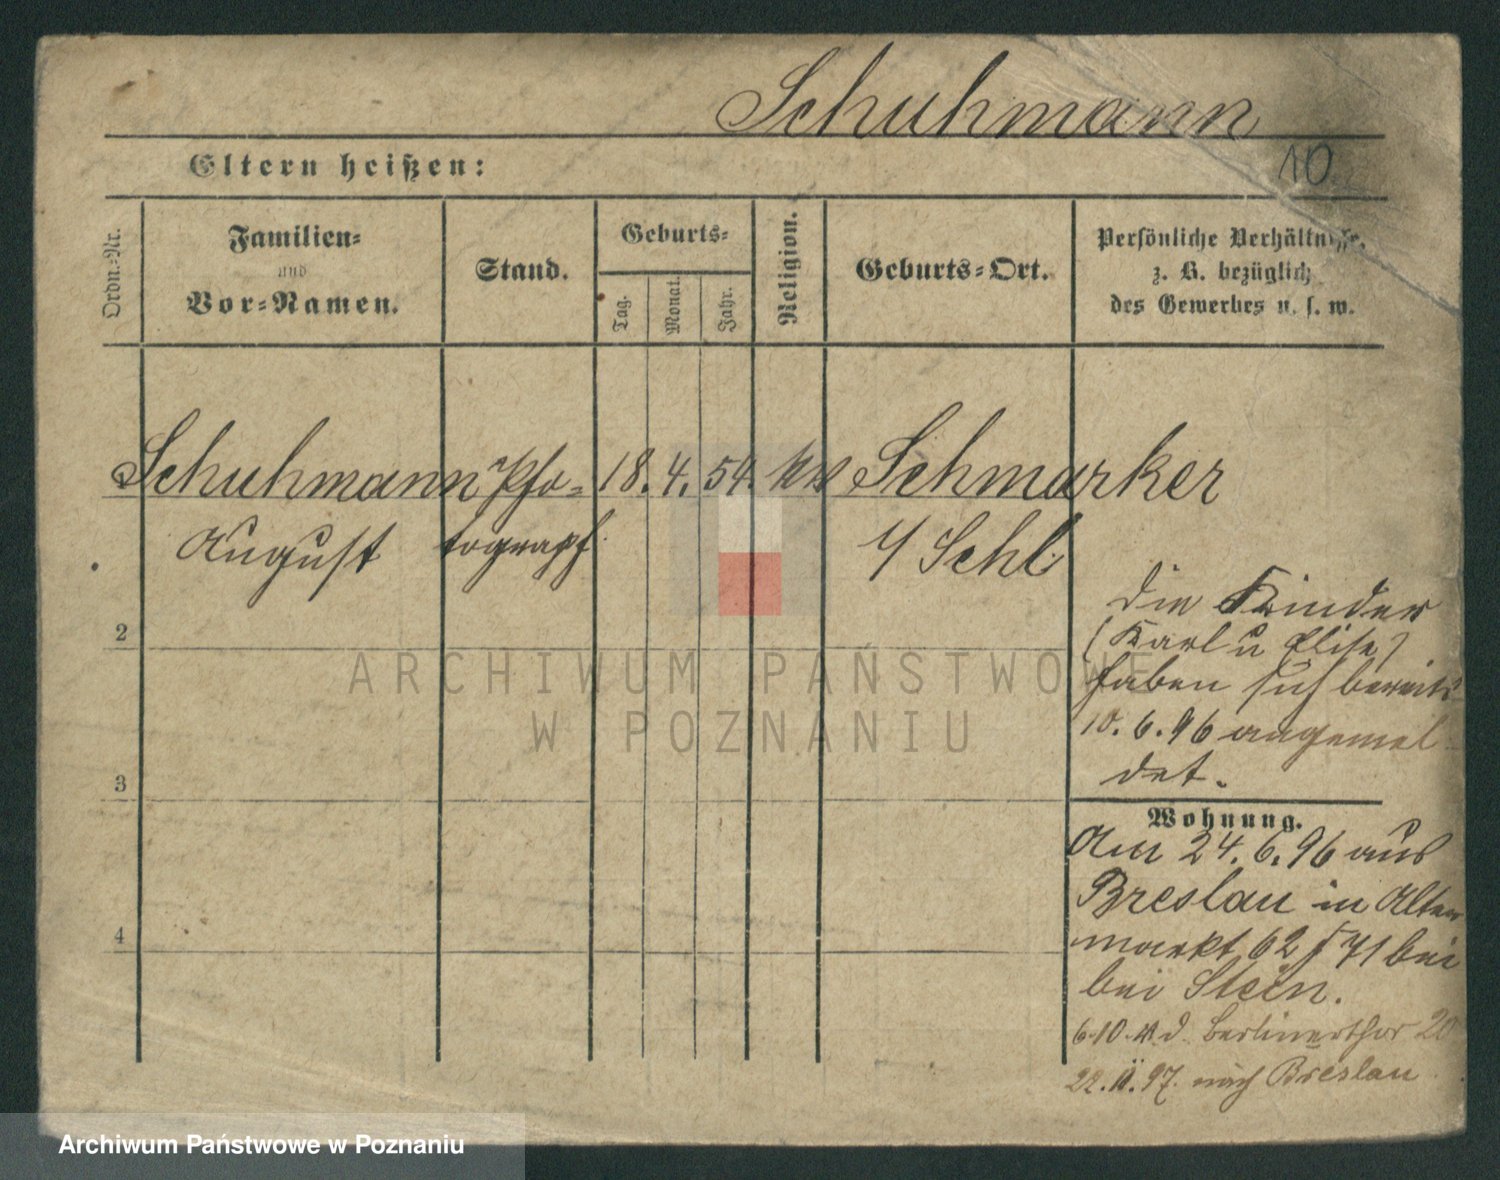 Schuhmann
Eltern heißen:
10
Ordn.-Nr.
Familien-
und
Vor-Namen.
Stand.
Geburts-
Tag.
Monat.
Jahr.
Religion.
Geburts-Ort.
Persönliche Verhältnisse,
z. B. bezüglich
des Gewerbes u. s. w.
Schuhmann Pho- 18. 4. 54. Schmarker
August tograph. Schl
die Kinder
(Karl u Elise)
haben sich bereits
10. 6. 96 angemel-
det.
2
3
4
Wohnung.
Am 24. 6. 96 aus
Breslau in Alter
markt 62 71 bei
bei Stein.
6.10. Berlinerthor 20
22. 97. nach Breslau
ARCHIWUM PAŃSTWOWE
W POZNANIU
Archiwum Państwowe w Poznaniu